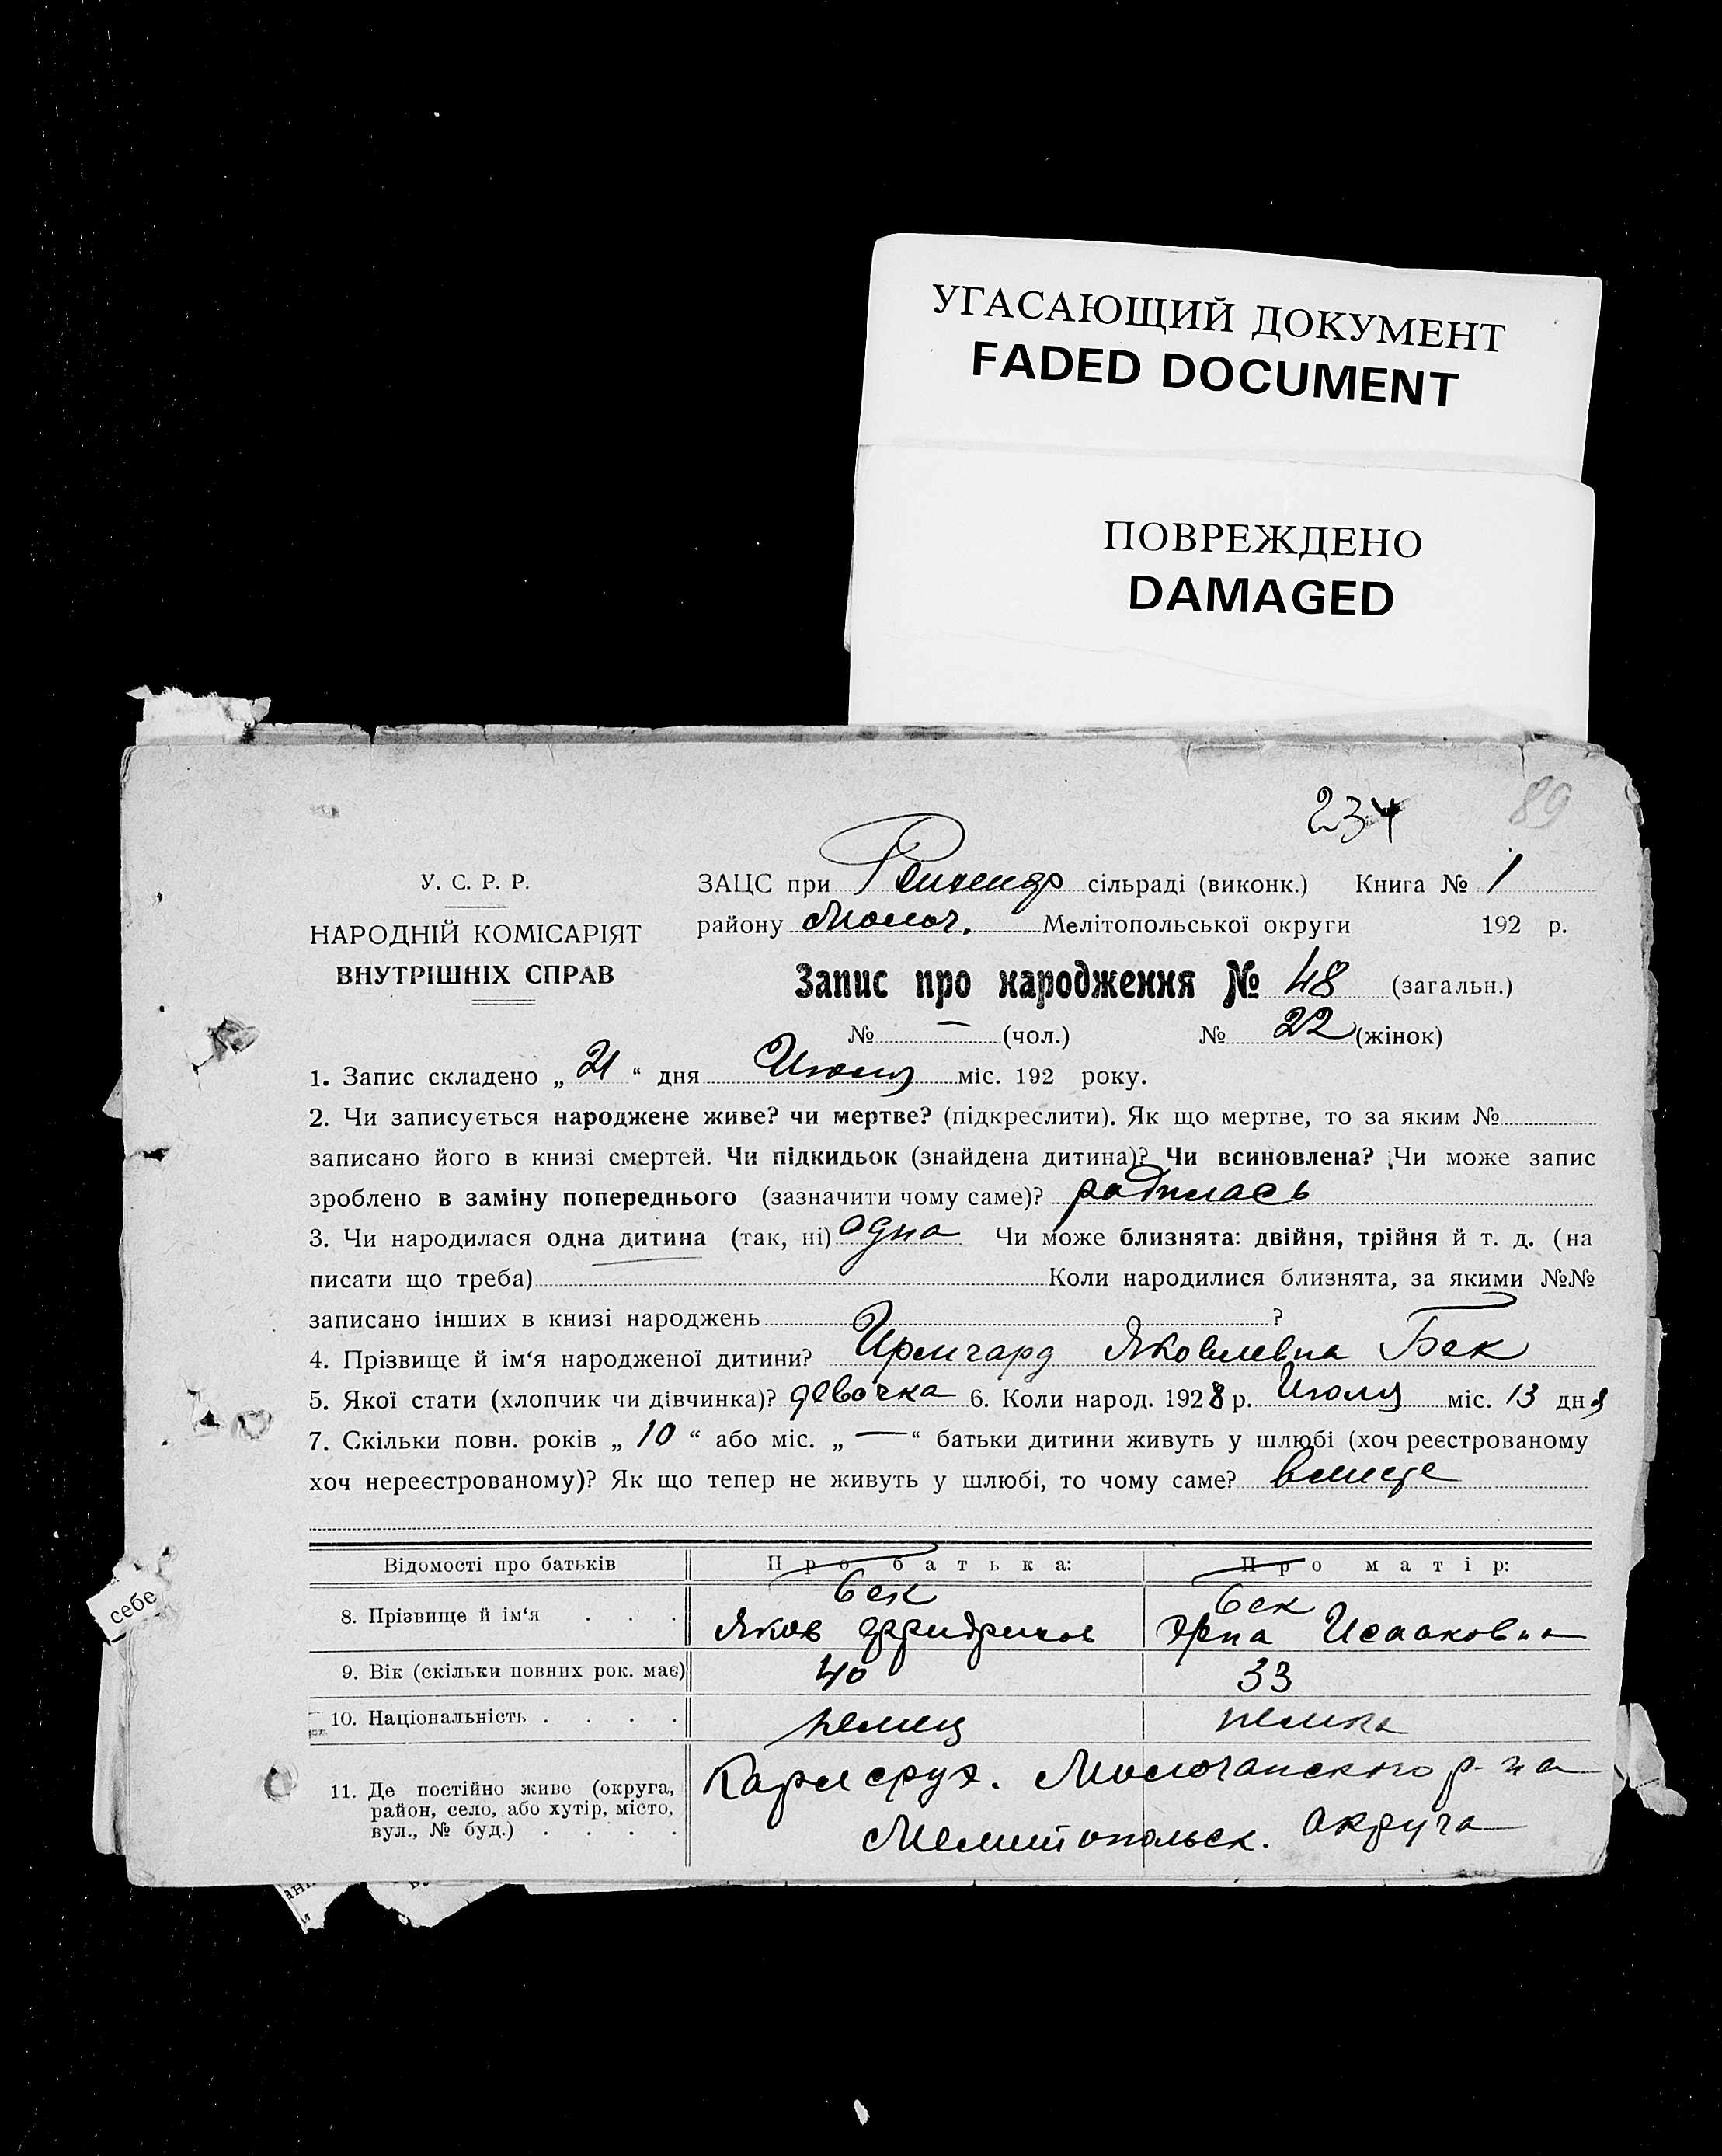 УГАСАЮЩИЙ ДОКУМЕНТ
FADED DOCUMENT
ПОВРЕЖДЕНО
DAMAGED
234 89
У. С. Р. Р.
НАРОДНІЙ КОМІСАРІЯТ
ВНУТРІШНІХ СПРАВ
ЗАЦС при сільраді (виконк.) Книга № 1
району Молоч. Мелітопольської округи 192 р.
Запис про народження № 48 (загальн.)
№ — (чол.) № 22 (жінок)
1. Запис складено „ 21 “ дня Июля міс. 192 року.
2. Чи записується народжене живе? чи мертве? (підкреслити). Як що мертве, то за яким №
записано його в книзі смертей. Чи підкидьок (знайдена дитина)? Чи всиновлена? Чи може запис
зроблено в заміну попереднього (зазначити чому саме)? родилась
3. Чи народилася одна дитина (так, ні) одна Чи може близнята: двійня, трійня й т. д. (на
писати що треба) Коли народилися близнята, за якими №№
записано інших в книзі народжень ?
4. Прізвище й ім‘я народженої дитини? Ирмгард Яковлевна Бек
5. Якої стати (хлопчик чи дівчинка)? девочка 6. Коли народ. 1928 р. Июля міс. 13 дня
7. Скільки повн. років „ 10 “ або міс. „ — “ батьки дитини живуть у шлюбі (хоч реєстрованому
хоч нереєстрованому)? Як що тепер не живуть у шлюбі, то чому саме?
Відомості про батьків Про батька: Про матір:
8. Прізвище й ім‘я . . . Бек Яков Фридрихов Бек Исааковна
9. Вік (скільки повних рок. має) 40 33
10. Національність . . . . немец немка
11. Де постійно живе (округа,
район, село, або хутір, місто,
вул., № буд.) . . . .
Карлсруэ. Молочанского р-на
Мелитопольск. округа
себе